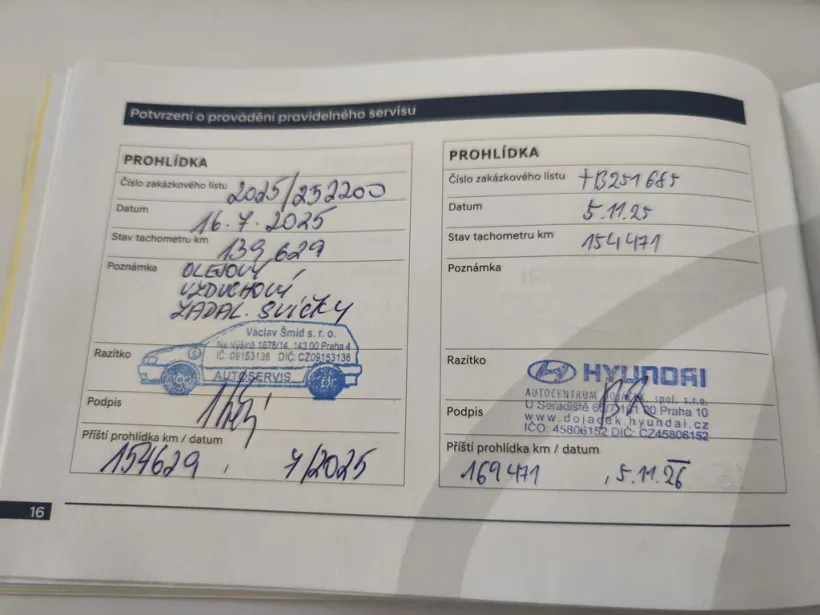 Potvrzení o provádění pravidelného servisu
PROHLÍDKA
Číslo zakázkového listu 2025/252200
Datum 16.7.2025
Stav tachometru km 139 629
Poznámka OLEJOVÝ
VZDUCHOVÝ
ZAPAL. SVÍČKY
Razítko
Václav Šmíd s. r. o.
Na Výšině 1878/14, 143 00 Praha 4
IČ: 09153136 DIČ: CZ09153136
AUTOSERVIS
Podpis
Příští prohlídka km / datum
154629, 7/2025
PROHLÍDKA
Číslo zakázkového listu +B251685
Datum 5.11.25
Stav tachometru km 154471
Poznámka
Razítko
HYUNDAI
AUTOCENTRUM DOJÁČEK, spol. s.r.o.
Podpis
U Seřadiště 65/7 101 00 Praha 10
www.dojacek.hyundai.cz
IČO: 45806152 DIČ: CZ45806152
Příští prohlídka km / datum
169471, 5.11.26
16